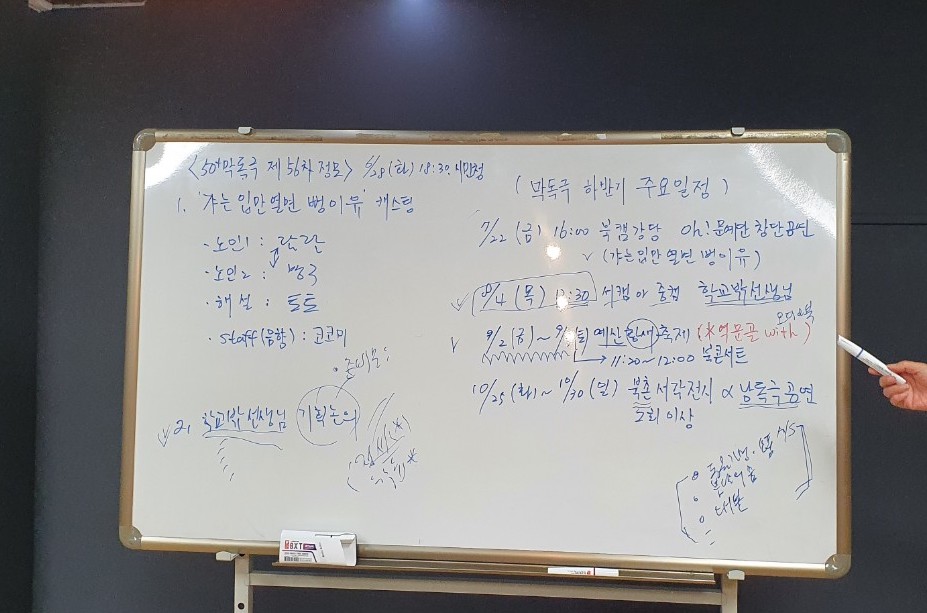 <50+막독극 제 56차 정모> 6/28 (화) 18:30. 시민청
1. '갸는 입만 열면 뻥이유' 캐스팅
· 노인1 : 랄랄
· 노인2 : 방국
· 해설 : 토토
· staff(음향) : 코코미
· 준비물:
✓ 2. 학교밖선생님 기획논의
(막독극 하반기 주요일정)
7/22 (금) 16:00 북캠강당 Oh! 문예단 창단공연
✓ (갸는 입만 열면 뻥이유)
✓ 8/4 (목) 13:30 서캠 or 중캠 학교밖선생님
오디오북
✓ 9/2 (금) ~ 9/ (토) 예산 (황새) 축제 (*역문골 with )
→ 11:20~12:00 북콘서트
10/25 (화) ~ 10/30 (일) 북촌 서각전시 & 낭독극 공연
2회 이상
A/S
대본